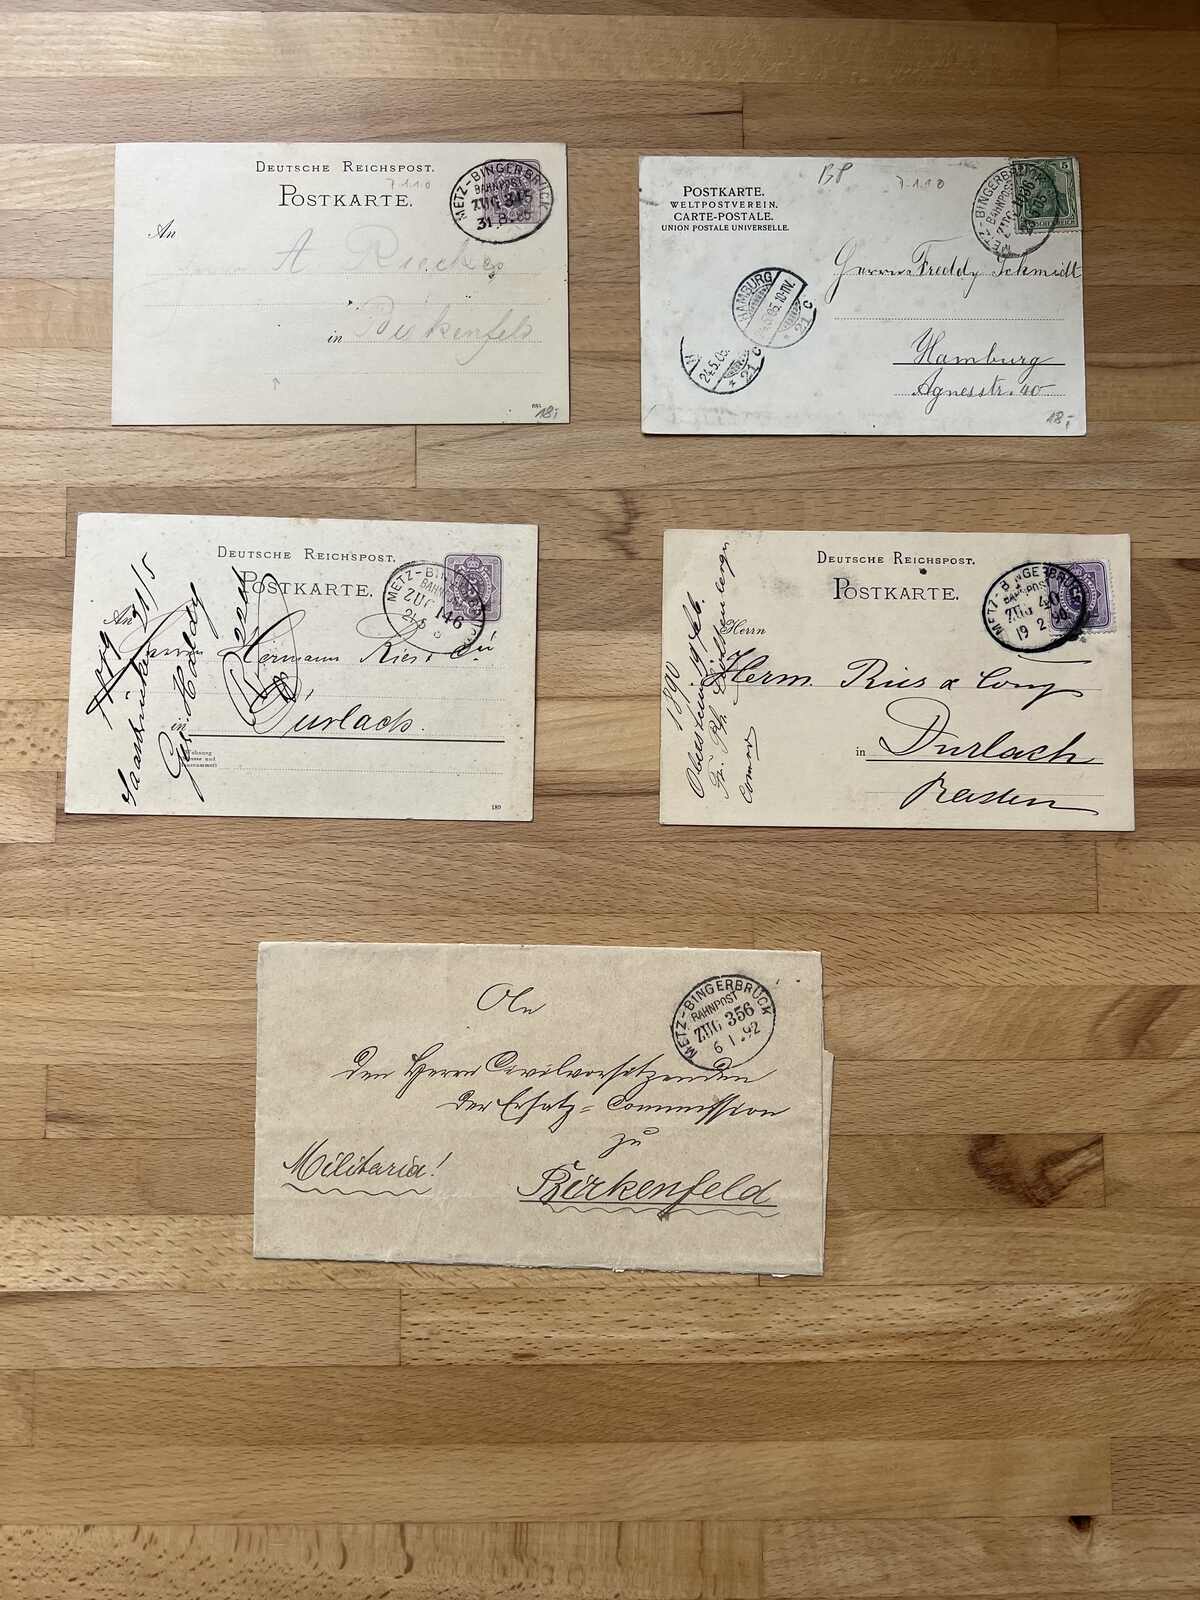 DEUTSCHE REICHSPOST.
POSTKARTE.
7.1.1.0
METZ-BINGERBRÜCK
BAHNPOST
ZUG 315
31.8.85
An
A
in Birkenfels
18,-
BP
7.1.1.0
POSTKARTE.
WELTPOSTVEREIN.
CARTE-POSTALE.
UNION POSTALE UNIVERSELLE.
METZ-BINGERBRÜCK
BAHNPOST
ZUG
5
Herrn Freddy Schmidt
Hamburg
Agnesstr. 40
HAMBURG
5.05. 10-11V.
* 21 c
24.5.05
* 21 c
18,-
DEUTSCHE REICHSPOST.
POSTKARTE.
METZ-BINGERBRÜCK
BAHNPOST
ZUG 146
21/5
An
Hermann Ries & Cie
in Durlach.
Wohnung
Saarbrücken
Gr. Haldy
180
DEUTSCHE REICHSPOST.
POSTKARTE.
METZ-BINGERBRÜCK
BAHNPOST
ZUG
19 2 90
Herrn
Herm. Ries & Comp
in Durlach
Baden
1890
Oberstein, 19 Feb.
METZ-BINGERBRÜCK
BAHNPOST
ZUG 356
6 1.92
den Herrn Civilvorsitzenden
der Ersatz-Commission
zu
Militaria!
Birkenfeld